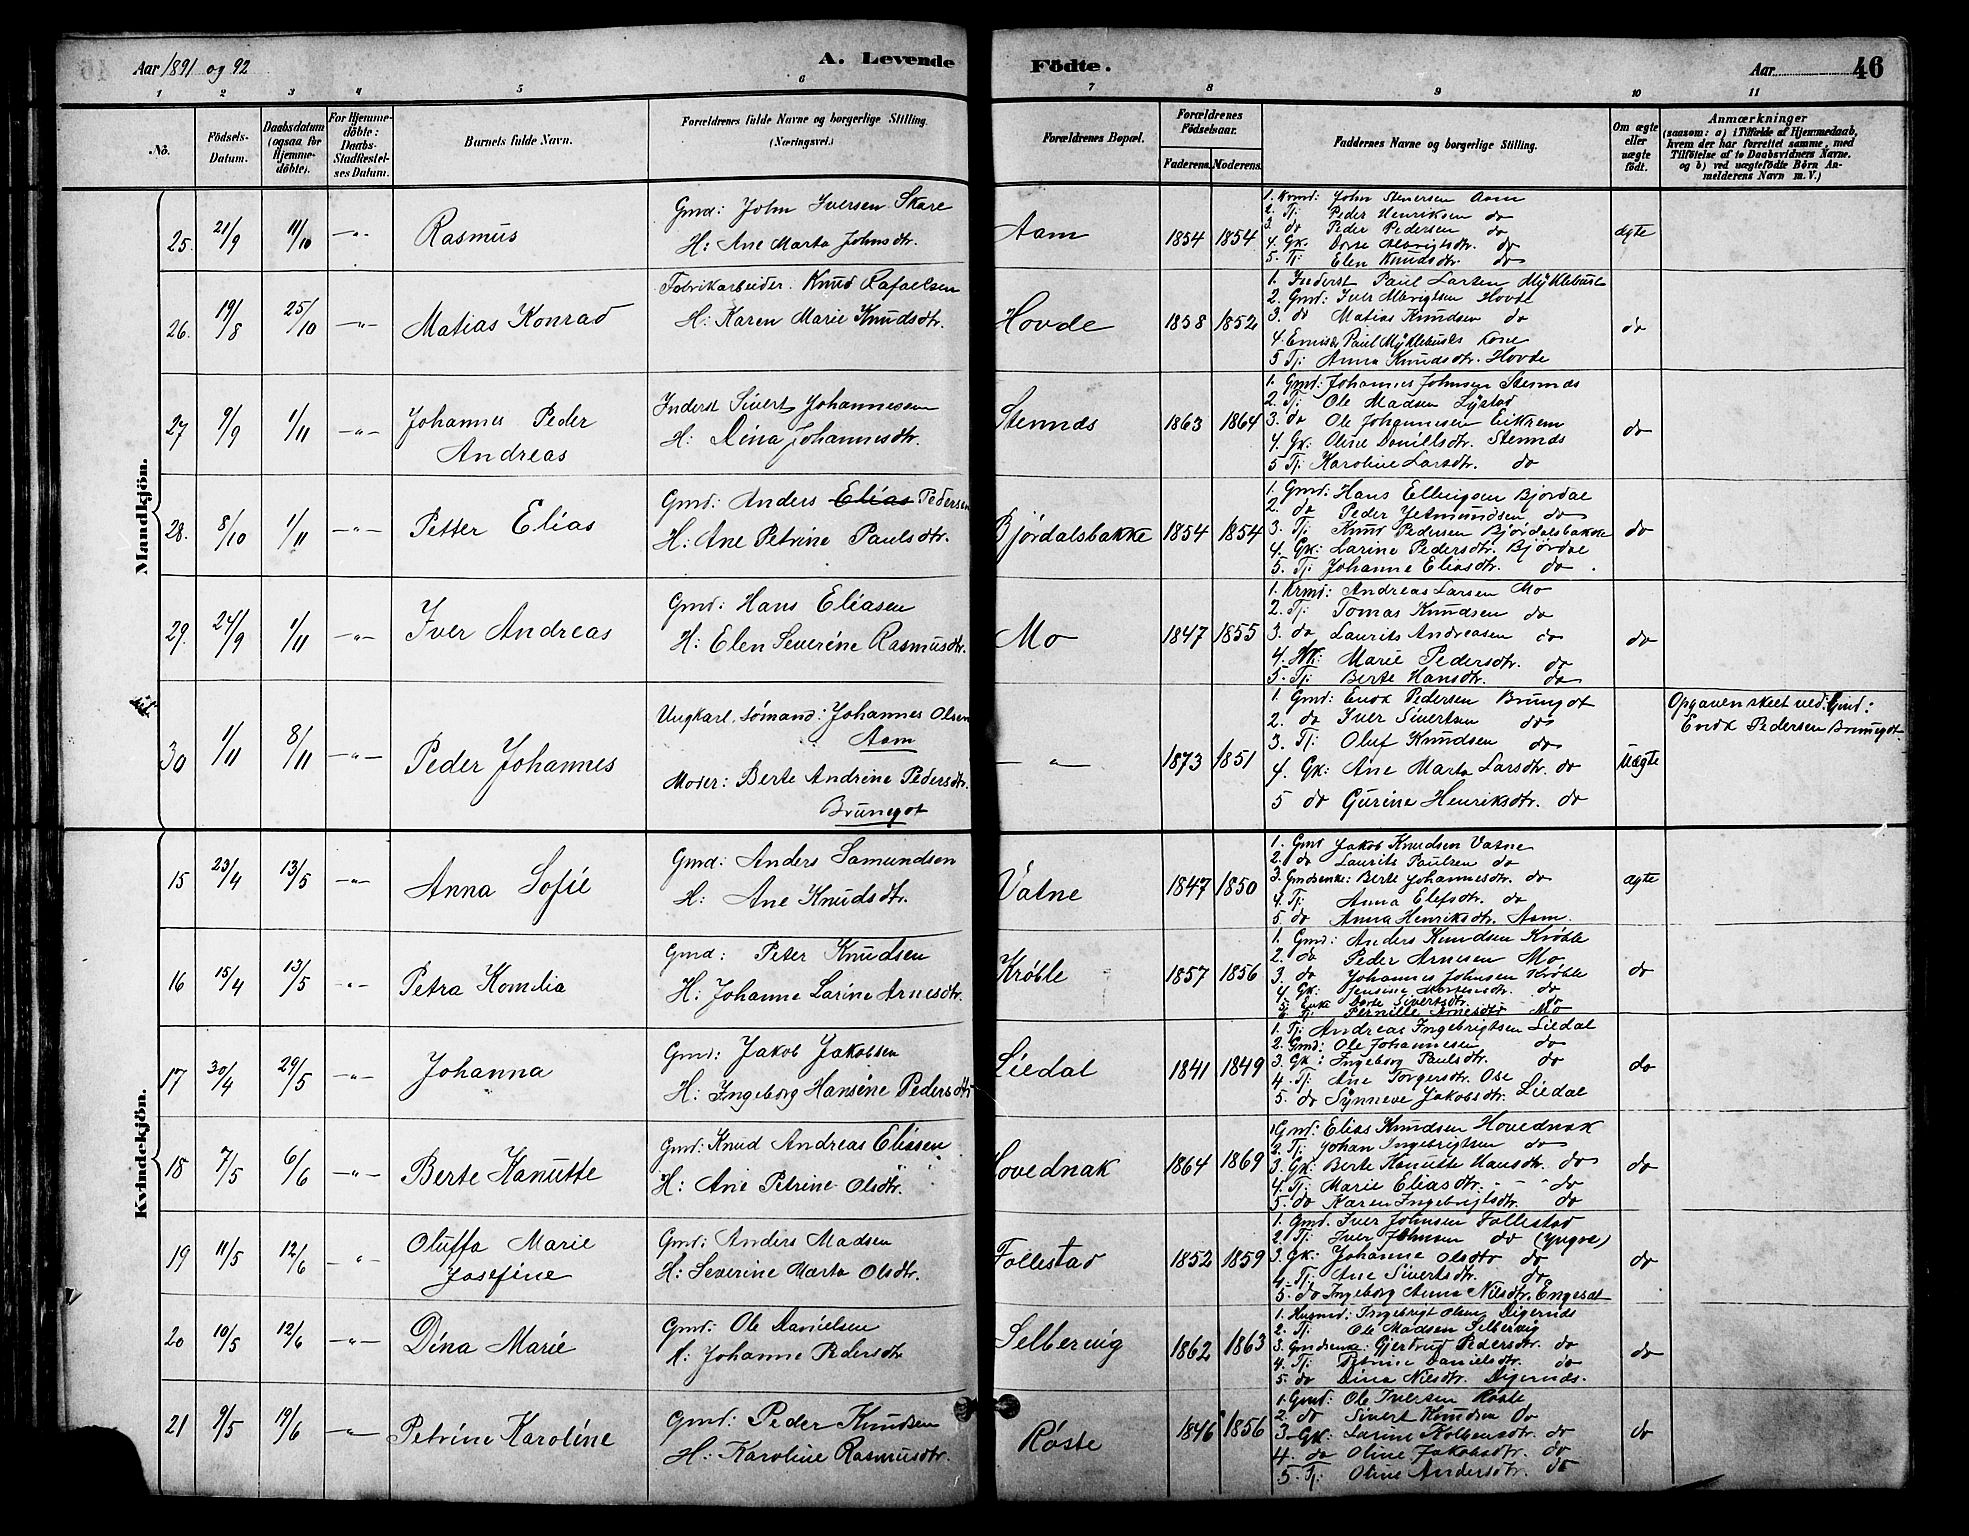 Aar 1891 og 92
A. Levende Fødte.
Aar 46
1 2 3 4 5 6 7 8 9 10 11
No.
Födsels-Datum.
Daabsdatum (ogsaa for Hjemmedöbte).
For Hjemmedöbte: Daabs-Stadfæstelses Datum.
Barnets fulde Navn.
Forældrenes fulde Navne og borgerlige Stilling. (Næringsvei.)
Forældrenes Bopæl.
Forældrenes Födselsaar.
Faderens. Moderens.
Faddernes Navne og borgerlige Stilling.
Om ægte eller uægte födt.
Anmærkninger
(saasom: a) i Tilfælde af Hjemmedaab, hvem der har forrettet samme, med Tilföielse af to Daabsvidners Navne, og b) ved uægtefödte Börn Anmelderens Navn m. V.)
Mandkjön.
25. 21/9 11/10 -"- Rasmus
Gmd: John Iversen Skare
H: Ane Marta Johnsdtr.
Aam 1854 1854
1. Krmd: John Stenersen Aam
2. Tj: Peder Henriksen do
3. do Peder Pedersen do
4. Gk. Dorte Albrigtsdtr. do
5. Tj: Elen Knudsdtr. do
ægte
26. 19/8 25/10 -"- Matias Konrad
Fabrikarbeider. Knud Rafaelsen
H: Karen Marie Knudsdtr.
Hovde 1858 1852
1. Inderst Paul Larsen Myklebust
2. Gmd: Iver Albrigtsen Hovde
3. do Matias Knudsen do
4. Enis& Paul Myklebusts Kone
5 Tj: Anna Knudsdtr. Hovde
do
27 9/9 1/11 -"- Johannes Peder
Andreas
Inderst Sivert Johannesen
H: Dina Johannesdtr.
Stennes 1863 1864
1. Gmd: Johannes Johnsen Stennes
2. Tj: Ole Madsen Systad
3. do Ole Johannesen Eikrem
4. Gk: Oline Danielsdtr. Stennes
5 Tj: Karoline Larsdtr. do
do
28. 8/10 1/11 -"- Petter Elias
Gmd: Anders Elias Pedersen
H: Ane Petrine Paulsdtr.
Bjørdalsbakke 1854 1854
1. Gmd: Hans Ellingsen Bjørdal
2. do Peder Jetmundsen do
3. Tj: Knut Pedersen Bjørdalsbakke
4. Gk: Larine Pedersdtr. Bjørdal
5. Tj: Johanne Eliasdtr. do.
do
29. 24/9 1/11 -"- Iver Andreas
Gmd: Hans Eliasen
H: Elen Severine Rasmusdtr.
Mo 1847 1855
1. Krmd: Andreas Larsen Mo
2. Tj: Tomas Knudsen do
3. do Laurits Andreasen do
4. Gk: Marie Pedersdtr. do
5. Tj: Berte Hansdtr. do
do
30 1/11 8/11 -"- Peder Johannes
Ungkarl, sømand: Johannes Olsen
Aam
Moder: Berte Andrine Pedersdtr.
Brunegot
-"- 1873 1851
1. Gmd: Endr. Pedersen Brungot
2. do Iver Sivertsen do
3. Tj: Oluf Knudsen do
4. Gk: Ane Marta Larsdtr. do
5 do Gurine Henriksdtr. do
Uægte
Opgaven skeet ved: Gmd:
Endr. Pedersen Brunegot.
Kvindekjön.
15 23/4 13/5 -"- Anna Sofie
Gmd: Anders Samundsen
H: Ane Knudsdtr.
Vatne 1847 1850
1. Gmd Jakob Knudsen Vatne
2. do Laurits Paulsen do
3. Gmdsenke: Berte Johannesdtr. do
4. Tj: Anna Elefsdtr. do
5. do Anna Henriksdtr. Aam.
ægte
16 15/4 13/5 -"- Petra Kornelia
Gmd: Peter Knudsen
H: Johanne Larine Arnesdtr.
Krøble 1857 1856
1. Gmd: Anders Knudsen Krøble
2. do Peder Arnesen Mo
3. do Johannes Johnsen Krøble
4 Gk: Jensine Mortensdtr. do
5: Enke Dorte Sivertsdtr. do
6 Tj: Pernille Arnesdtr Mo
do
17 30/4 29/5 -"- Johanna
Gmd: Jakob Jakobsen
H: Ingeborg Hansine Pedersdtr
Liedal 1841 1849
1. Tj: Andreas Ingebrigtsen Liedal
2. Gmd: Ole Johannesen do
3. Gk: Ingeborg Paulsdtr. do
4. Tj: Ane Torgersdtr. Ose
5. do Synneve Jakobsdtr. Liedal
do
18 7/5 6/6 -"- Berte Kanutte
Gmd: Knud Andreas Eliasen
H: Ane Petrine Olsdtr.
Hovednak 1864 1869
1 Gmd: Elias Knudsen Hovednak
2. Tj: Johan Ingebrigtsen do
3. Gk: Berte Kanutte Hansdtr. do
4. Tj: Marie Eliasdtr. do
5. do Karen Ingebrigtsdtr. do
do
19 11/5 12/6 -"- Oluffa Marie
Josefine
Gmd: Anders Madsen
H: Severine Marta Olsdtr.
Follestad 1852 1859
1. Gmd. Iver Johnsen Follestad
2. Tj: Iver Johnsen do (yngre)
3. Gk: Johanne Olsdtr do
4. Tj: Ane Sivertsdtr. do
5. do Ingeborg Anna Nilsdtr. Engeset
do
20 10/5 12/6 -"- Dina Marie
Gmd: Ole Danielsen
H: Johanne Pedersdtr
Selbervig 1862 1863
1. Husmd: Ingebrigt Olsen Digernes
2. Tj: Ole Madsen Selbervig
3. Gmdsenke: Gjertrud Pedersdtr. do
4. Tj: Petrine Danielsdtr. do
5. do Dina Nilsdtr. Digernes.
do
21 9/5 19/6 -"- Petrine Karoline
Gmd: Peder Knudsen
H: Karoline Rasmusdtr.
Røste 1846 1856
1. Gmd: Ole Iversen Røste
2. do Sivert Knudsen do
3. Gk: Larine Kolbensdtr. do
4. do Oline Jakobsdtr. do
5. Tj: Oline Andersdtr. do
do